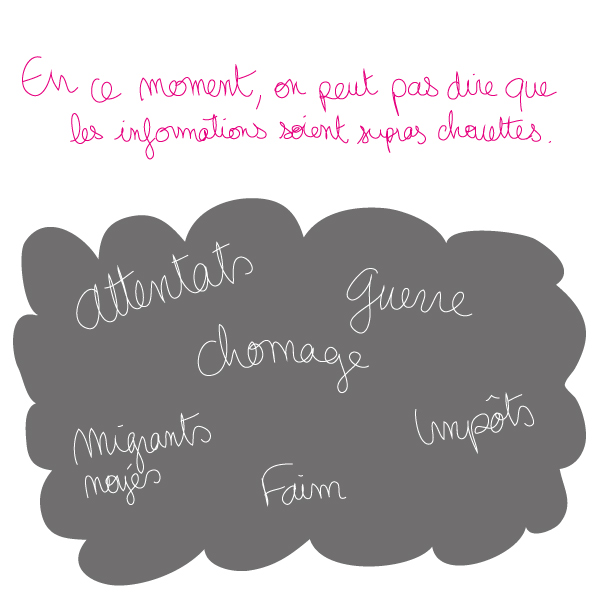 En ce moment, on peut pas dire que
les informations soient supras chouettes.
Attentats
Guerre
chomage
Migrants
noyés
Impôts
Faim